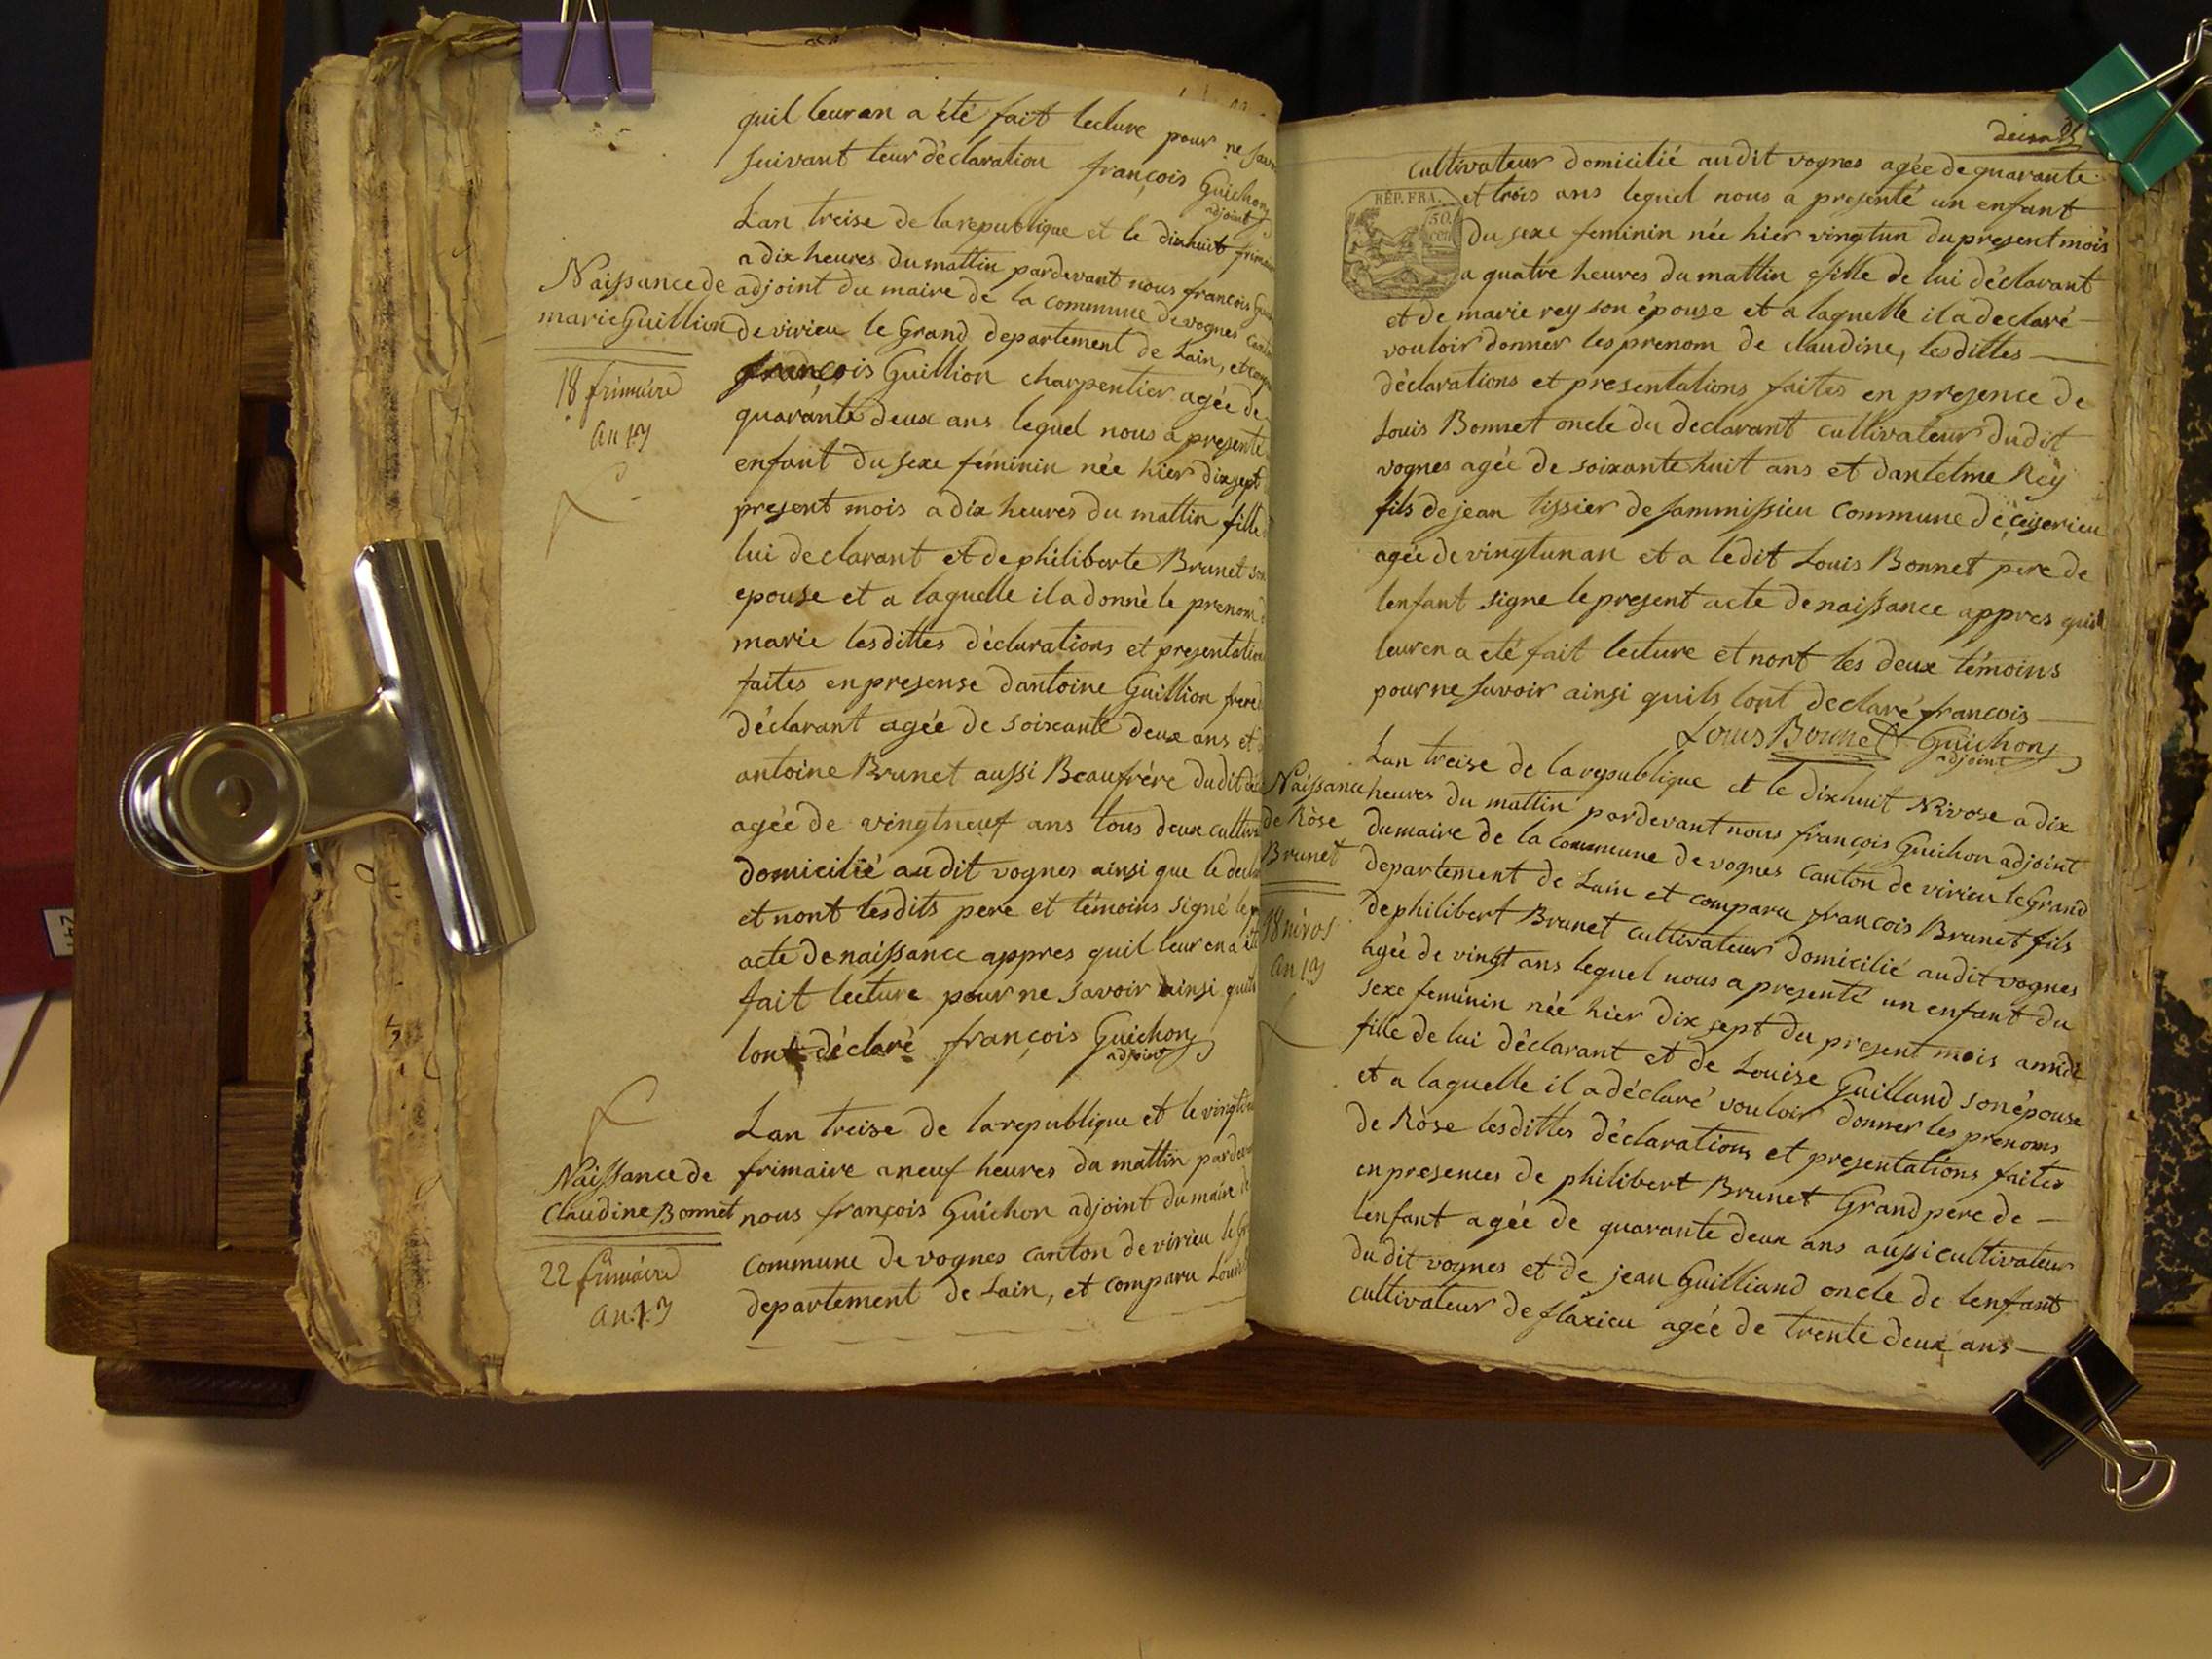 quil leur an a été fait lecture pour ne
suivant leur déclaration françois Guichon
adjoint
Naissance de
marie Guillion
18 frimaire
an 13
Lan treise de la republique et le dixhuit
a dix heures du mattin pardevant nous francois
adjoint du maire de la commune de vognes
de virieu le Grand departement de Lain,
françois Guillion charpentier agée de
quarante deux ans lequel nous a presenté
enfant du sexe féminin née hier dixsept
present mois a dix heures du mattin fille
lui declarant et de philiberte Brunet
epouse et a laquelle il a donné le prenom
marie lesdittes déclarations et presentation
faites en presense dantoine Guillion frere
déclarant agée de soixante deux ans et
antoine Brunet aussi Beaufrère dudit
agée de vingtneuf ans tous deux
domicilié audit vognes ainsi que le
et nont lesdits pere et témoins signé
acte de naissance appres quil leur en a
fait lecture pour ne savoir ainsi
lont déclaré françois Guichon
adjoint
Naissance de
Claudine Bonnet
22 frimaire
an 13
Lan treise de la republique et le
frimaire a neuf heures du mattin
nous françois Guichon adjoint du maire
commune de vognes canton de virieu
departement de Lain, et comparu
REP. FRA.
50
cultivateur domicilié audit vognes agée de quarante
et trois ans lequel nous a presenté un enfant
du sexe feminin née hier vingtun du present mois
a quatre heures du mattin fille de lui déclarant
et de marie rey son épouse et a laquelle il a declaré
vouloir donner les prenom de claudine, lesdittes
déclarations et presentations faites en presence de
Louis Bonnet oncle du declarant cultivateur dudit
vognes agée de soixante huit ans et dantelme Rey
fils de jean tissier de sammissieu Commune de ceiserieu
agée de vingtun an et a ledit Louis Bonnet pere de
lenfant signe le present acte de naissance appres quil
leur en a été fait lecture et nont les deux témoins
pour ne savoir ainsi quils lont declaré françois
Louis Bonnet Guichon
adjoint
Naissance
de Ròse
Brunet
18 nivos
an 13
Lan treise de la republique et le dixhuit Nivose a dix
heures du mattin pardevant nous françois Guichon adjoint
du maire de la commune de vognes Canton de virieu le Grand
departement de Lain et comparu françois Brunet fils
de philibert Brunet cultivateur domicilié audit vognes
agée de vingt ans lequel nous a presenté un enfant du
sexe feminin née hier dix sept du present mois a midi
fille de lui déclarant et de Louise Guilland son épouse
et a laquelle il a déclaré vouloir donner les prenoms
de Ròse lesdittes déclarations et presentations faites
en presences de philibert Brunet Grand pere de
lenfant agée de quarante deux ans aussi cultivateur
du dit vognes et de jean Guilliand oncle de lenfant
cultivateur de flaxieu agée de trente deux ans